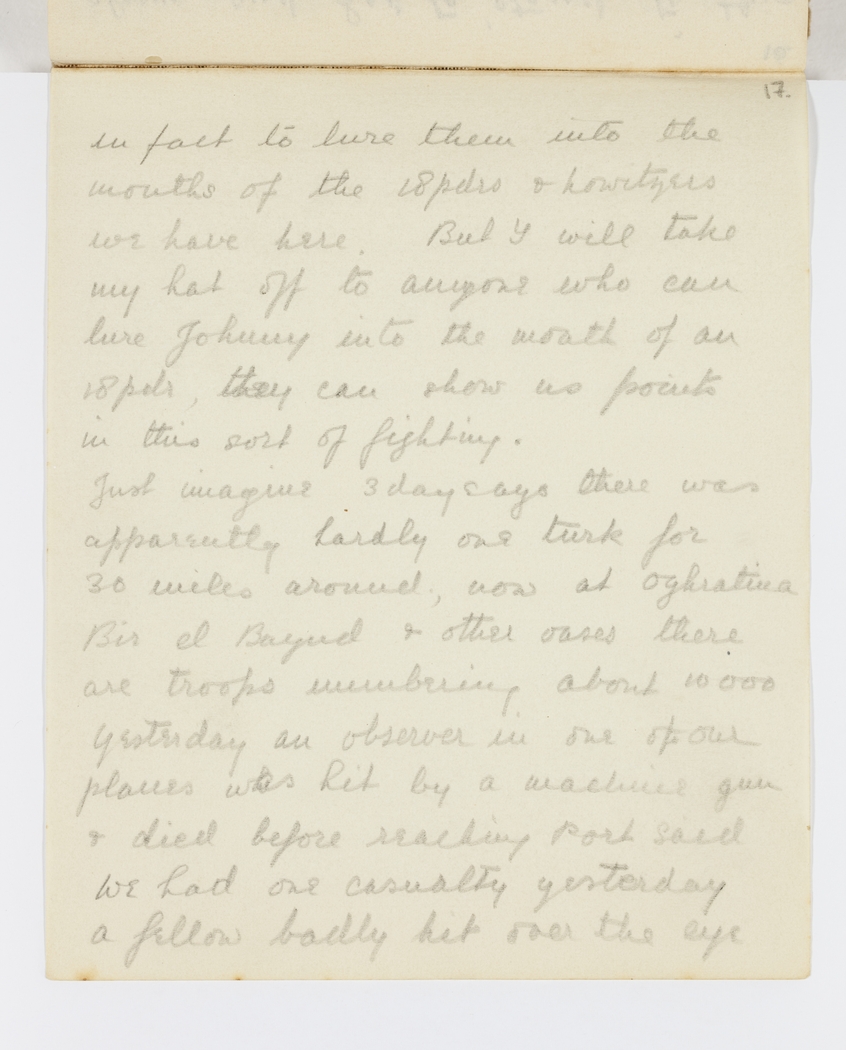 17.
in fact to lure them into the
mouths of the 18pdrs & howitzers
we have here. But I will take
my hat off to anyone who can
lure Johnny into the mouth of an
18pdr, they can show us points
in this sort of fighting.
Just imagine 3 days ago there was
apparently hardly one turk for
30 miles around, now at Oghratina
Bir el Bayud & other oases there
are troops numbering about 10 000
Yesterday an observer in one of our
planes was hit by a machine gun
& died before reaching Port Said
We had one casualty yesterday
a fellow badly hit over the eye